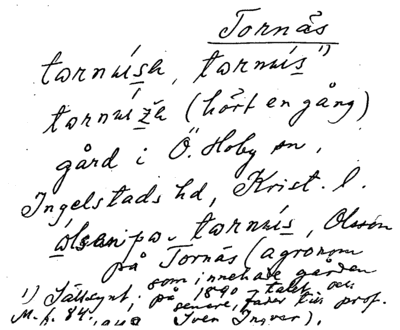 Tornås
tornúsa, tornús¹⁾
tornúža (hört en gång)
gård i Ö. Hoby sn,
Ingelstads hd, Krist. l.
tornús, Olsson
på Tornås (agronom
som innehade gården
1) Sällsynt. på 1890-talet och
M. f. 84. senare, fader till prof.
Sven Ingvar).